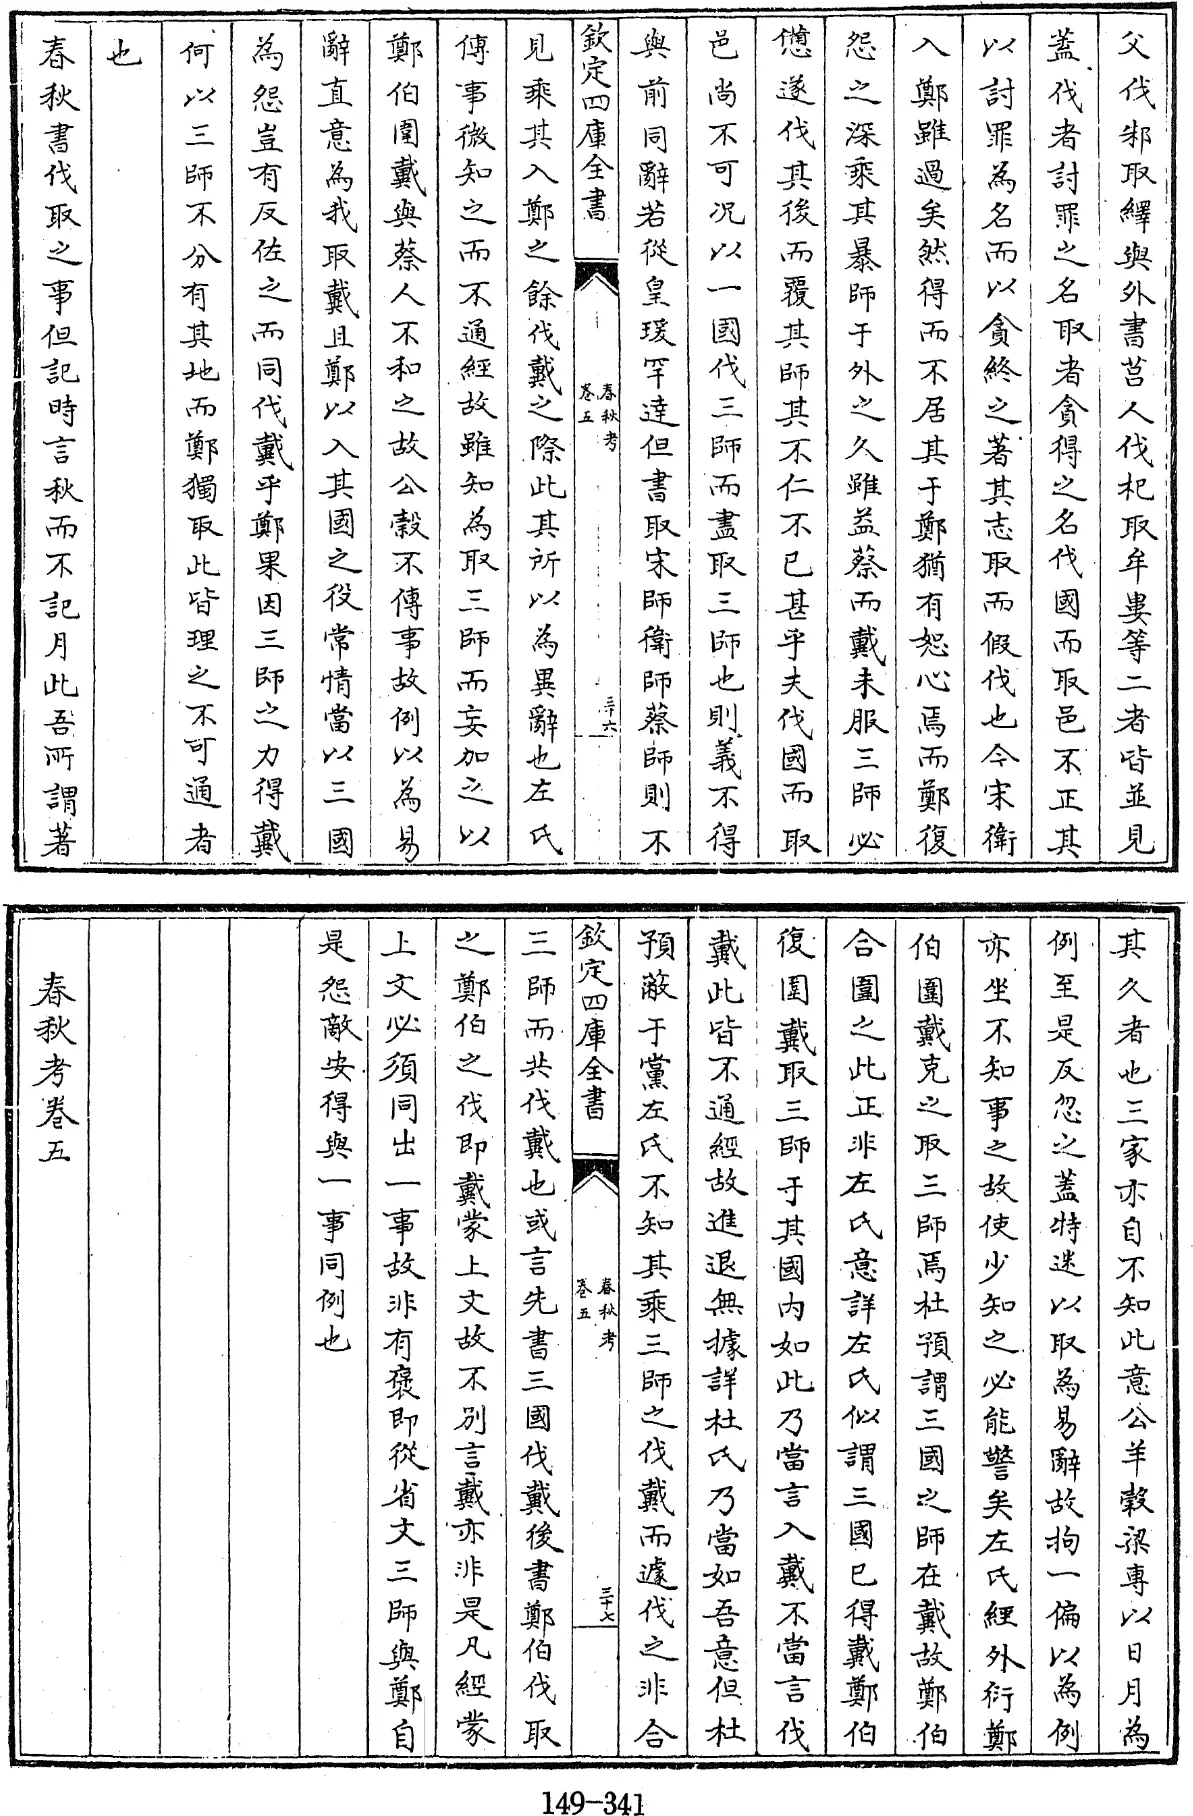 父伐邾取繹與外書莒人伐杞取牟婁等二者皆並見
蓋伐者討罪之名取者貪得之名伐國而取邑不正其
以討罪為名而以貪終之著其志取而假伐也今宋衛
入鄭雖過矣然得而不居其于鄭猶有恕心焉而鄭復
怨之深乘其暴師于外之久雖益蔡而戴未服三師必
憊遂伐其後而覆其師其不仁不已甚乎夫伐國而取
邑尚不可况以一國伐三師而盡取三師也則義不得
與前同辭若從皇瑗罕達但書取宋師衛師蔡師則不
欽定四庫全書
春秋考
卷五
三十六
見乘其入鄭之餘伐戴之際此其所以為異辭也左氏
傳事微知之而不通經故雖知為取三師而妄加之以
鄭伯圍戴與蔡人不和之故公穀不傳事故例以為易
辭直意為我取戴且鄭以入其國之役常情當以三國
為怨豈有反佐之而同伐戴乎鄭果因三師之力得戴
何以三師不分有其地而鄭獨取此皆理之不可通者
也
春秋書伐取之事但記時言秋而不記月此吾所謂著
其久者也三家亦自不知此意公羊穀梁專以日月為
例至是反忽之蓋特迷以取為易辭故拘一偏以為例
亦坐不知事之故使少知之必能警矣左氏經外衍鄭
伯圍戴克之取三師焉杜預謂三國之師在戴故鄭伯
合圍之此正非左氏意詳左氏似謂三國已得戴鄭伯
復圍戴取三師于其國内如此乃當言入戴不當言伐
戴此皆不通經故進退無據詳杜氏乃當如吾意但杜
預蔽于黨左氏不知其乘三師之伐戴而遽伐之非合
欽定四庫全書
春秋考
卷五
三十七
三師而共伐戴也或言先書三國伐戴後書鄭伯伐取
之鄭伯之伐即戴蒙上文故不别言戴亦非是凡經蒙
上文必須同出一事故非有褒即從省文三師與鄭自
是怨敵安得與一事同例也
春秋考卷五
149-341